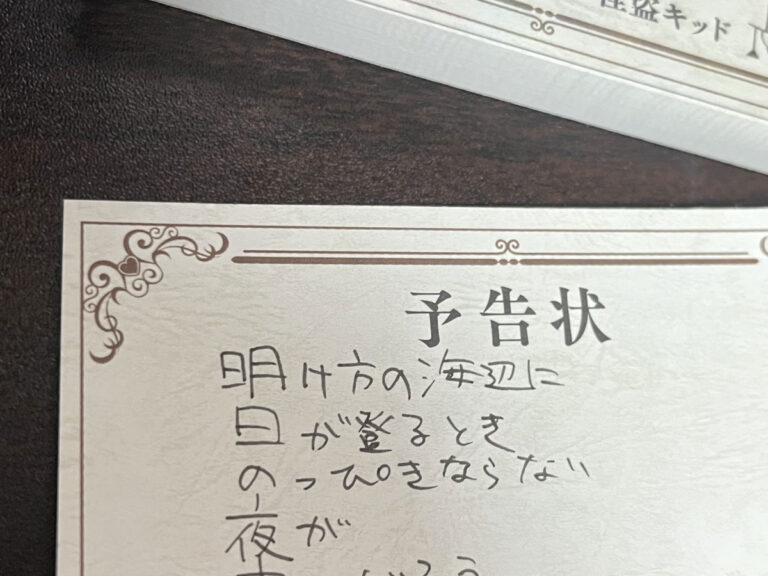 怪盗キッド
予告状
明け方の海辺に
日が登るとき
のっぴきならない
夜が